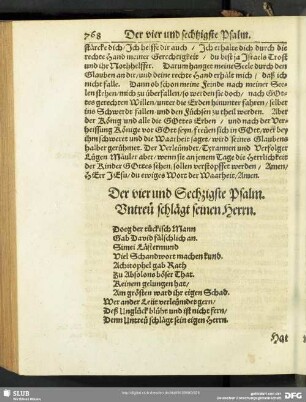 768 Der vier und sechzigste Psalm.
stärcke dich / Ich helffe dir auch / Ich erhalte dich durch die
rechte Hand meiner Gerechtigkeit / du bist ja Israels Trost
und ihr Nothhelffer. Darum hanget meine Seele durch den
Glauben an dir / und deine rechte Hand erhält mich / daß ich
nicht falle. Dann ob schon meine Feinde nach meiner See-
len stehen / mich zu überfallen / so werden sie doch / nach GOt-
tes gerechten Willen / unter die Erden hinunter fahren / selber
ins Schwerdt fallen und den Füchsen zu theil werden. Aber
der König und alle die GOttes Erben / und nach der Ver-
heissung Könige vor GOtt seyn / freuen sich in GOtt, wer bey
ihm schweret und die Waarheit saget / wird seines Glaubens
halber gerühmet. Der Verleumder / Tyrannen und Verfolger
Lügen Mäuler aber / wenn sie an jenem Tage die Herrlichkeit
der Kinder GOttes sehen / sollen verstopffet werden / Amen /
HErr JEsu / du ewiges Wort der Waarheit / Amen.
Der vier und Sechzigste Psalm.
Untreü schlägt seinen Herrn.
Doeg der tückisch Mann
Gab David fälschlich an.
Simei Lästermund
Viel Schandwort machen kund.
Achitophel gab Rath
Zu Absolons böser That.
Keinem gelungen hat /
Am grösten ward ihr eigen Schad.
Wer ander Leüt verleümdet gern /
Deß Unglück blüht und ist nicht fern /
Denn Untreü schlägt sein eigen Herrn.
Hat
SLUB
DFG